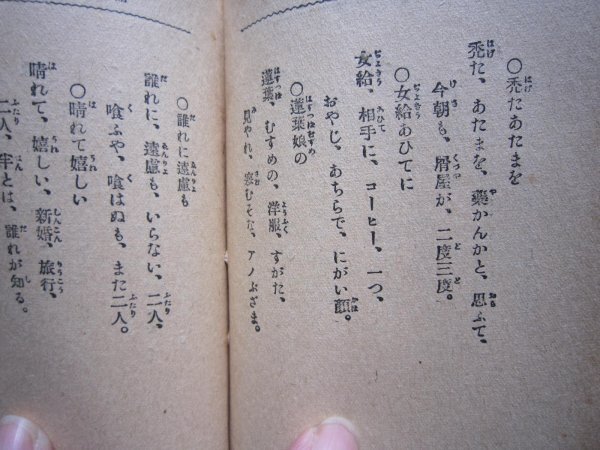 〇禿たあたまを
禿た、あたまを、藥かんかと、思ふて、
今朝も、屑屋が、二度三度。
〇女給あひてに
女給、相手に、コーヒー、一つ、
おやじ、あちらで、にがい顏。
〇蓮葉娘の
蓮葉、むすめの、洋服、すがた、
見やれ、窓むそな、アノぶざま。
〇誰れに遠慮も
誰れに、遠慮も、いらない、二人、
喰ふや、喰はぬも、また二人。
〇晴れて嬉しい
晴れて、嬉しい、新婚、旅行、
二人、牢とは、誰れが知る。